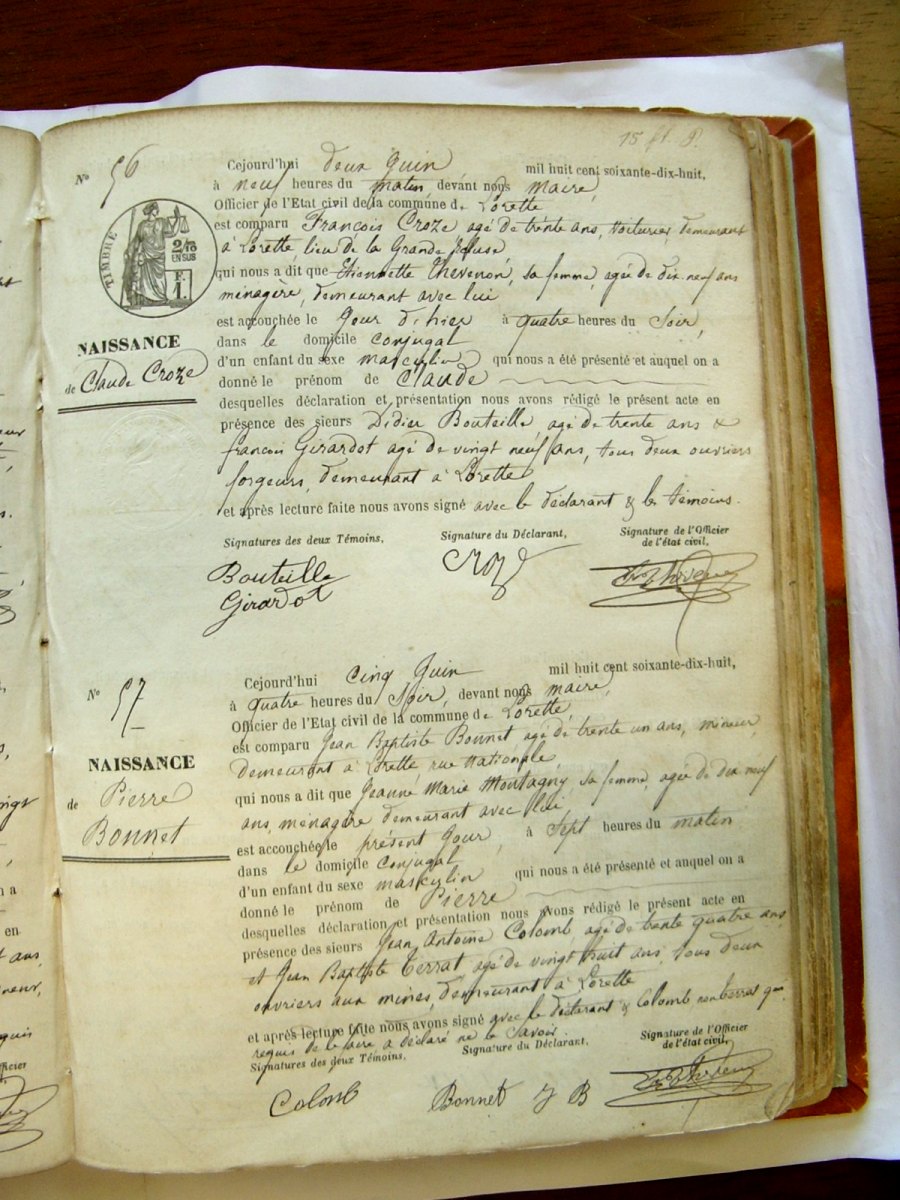 15 ft. P.
Nº 56
Cejourd'hui deux Juin mil huit cent soixante-dix-huit,
à neuf heures du matin devant nous maire,
Officier de l'Etat civil de la commune de Lorette
est comparu François Croze agé de trente ans, voiturier, demeurant
à Lorette, lieu de la Grande
qui nous a dit que Etiennette Thevenon, sa femme, agée de dix neuf ans
ménagère, demeurant avec lui
est accouchée le Jour d'hier à quatre heures du Soir,
dans le domicile conjugal
d'un enfant du sexe masculin qui nous a été présenté et auquel on a
donné le prénom de Claude
desquelles déclaration et présentation nous avons rédigé le présent acte en
présence des sieurs Didier Bouteille, agé de trente ans &
françois Girardot agé de vingt neuf ans, tous deux ouvriers
forgeurs, demeurant à Lorette
et après lecture faite nous avons signé avec le déclarant & les témoins.
TIMBRE
2/10
EN SUS
F.
1.
NAISSANCE
de Claude Croze
Signatures des deux Témoins,
Signature du Déclarant,
Signature de l'Officier
de l'état civil,
Bouteille
Girardot
Croze
Nº 57
Cejourd'hui Cinq Juin mil huit cent soixante-dix-huit,
à quatre heures du Soir, devant nous maire,
Officier de l'Etat civil de la commune de Lorette
est comparu Jean Baptiste Bonnet agé de trente un ans, mineur,
demeurant à Lorette rue Nationale
qui nous a dit que Jeanne Marie Montagny, sa femme, agée de dix neuf
ans, ménagère demeurant avec lui
est accouchée le présent Jour, à Sept heures du matin
dans le domicile conjugal
d'un enfant du sexe masculin qui nous a été présenté et auquel on a
donné le prénom de Pierre
desquelles déclaration et présentation nous avons rédigé le présent acte en
présence des sieurs Jean Antoine Colomb, agé de trente quatre ans,
et Jean Baptiste Terrat, agé de vingt huit ans, tous deux
ouvriers aux mines, demeurant à Lorette
et après lecture faite nous avons signé avec le déclarant & Colomb non Terrat qui
requis de le faire a déclaré ne le Savoir.
NAISSANCE
de Pierre
Bonnet
Signatures des deux Témoins,
Signature du Déclarant,
Signature de l'Officier
de l'état civil,
Colomb
Bonnet J B